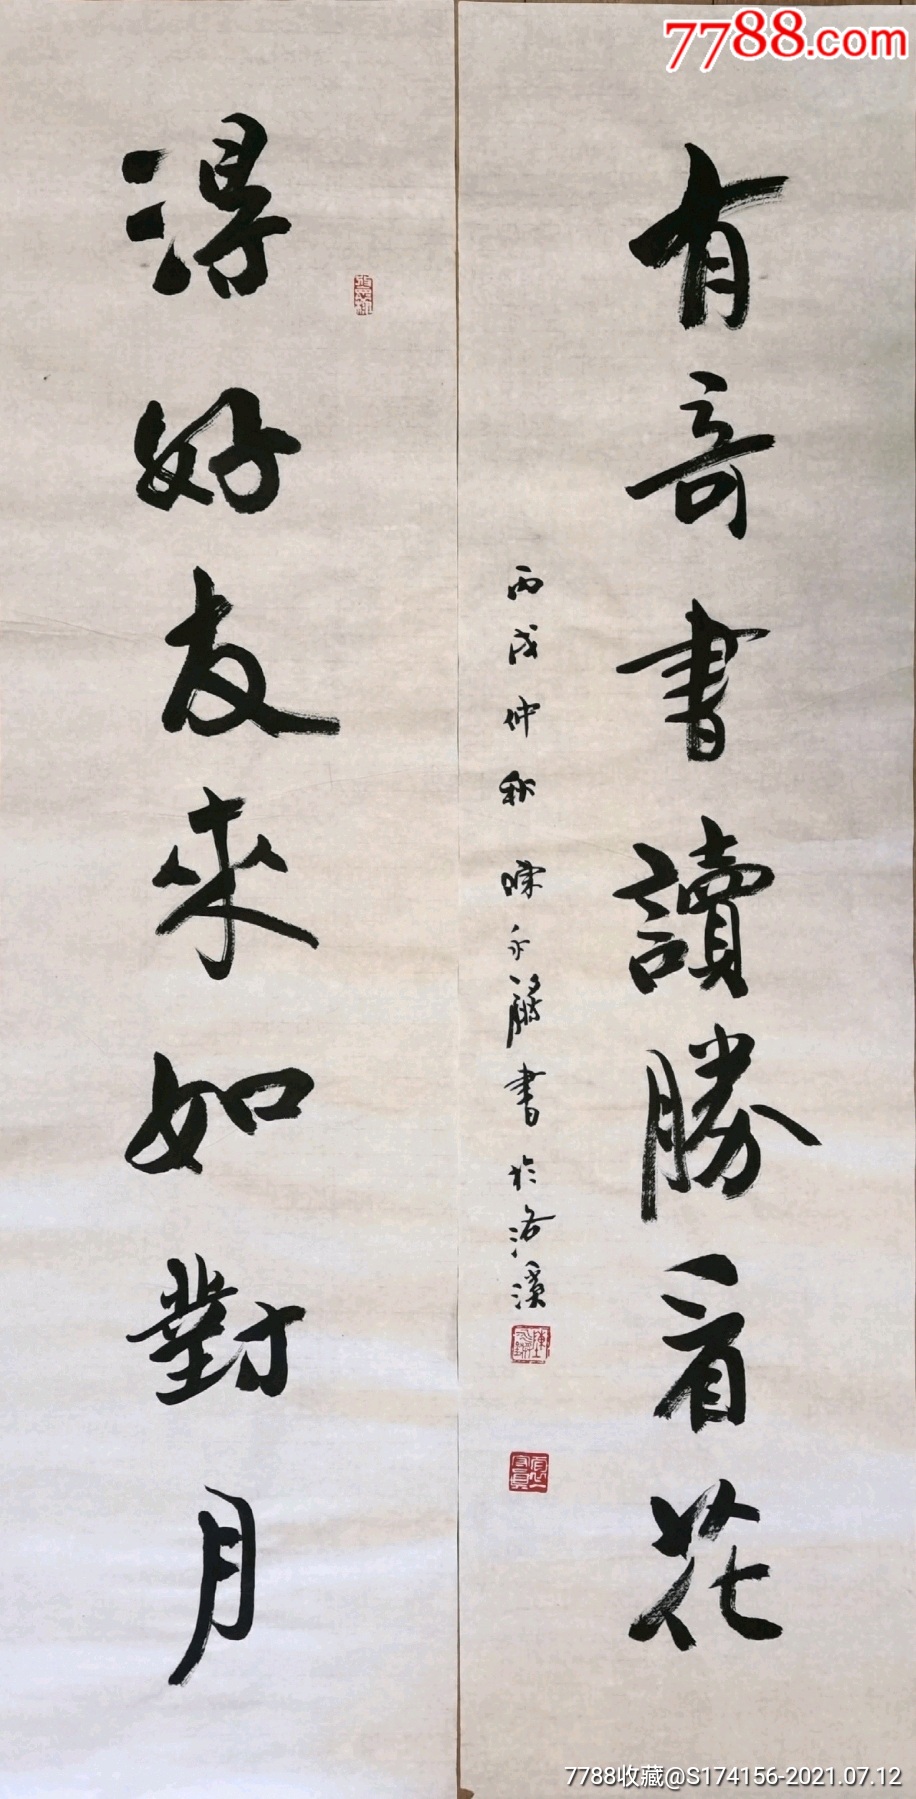 7788.com
有奇書讀勝看花
丙戌仲秋 陳永鏘書於洛溪
得好友來如對月
7788收藏@S174156-2021.07.12